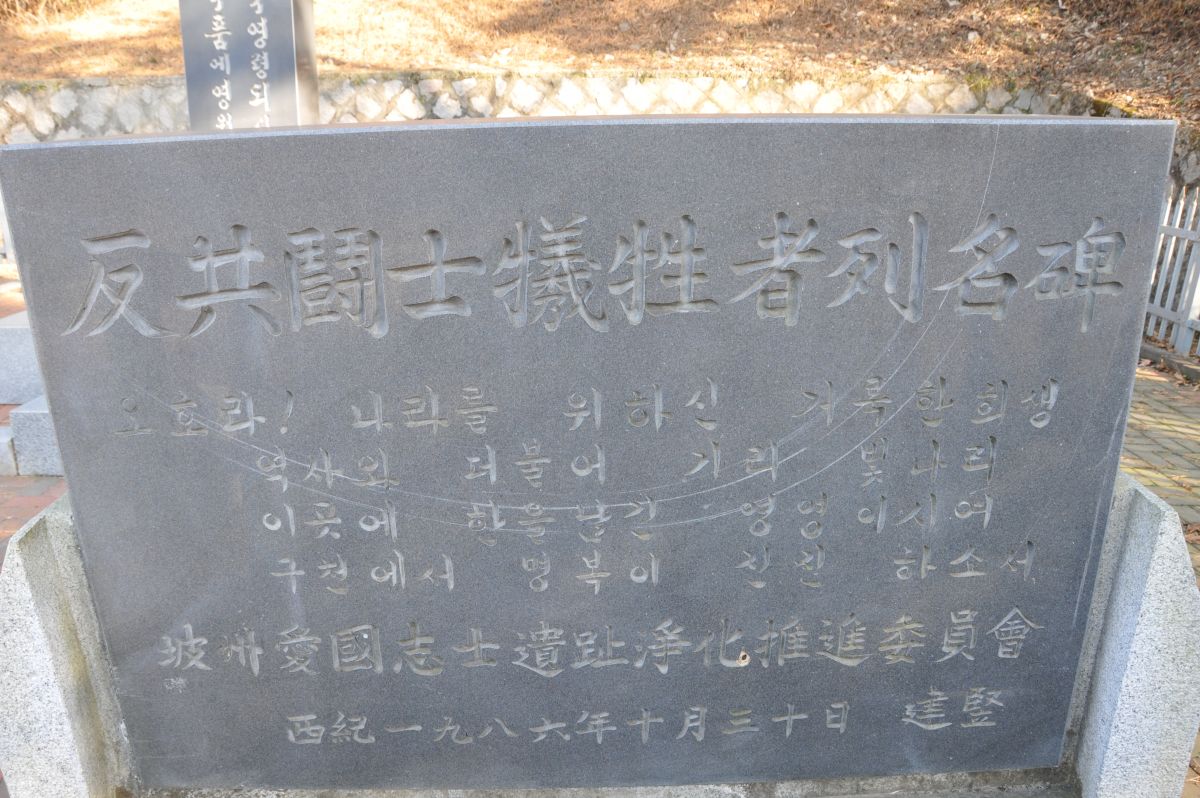 영령되시
품에영원
反共鬪士犧牲者列名碑
오호라! 나라를 위하신 거룩한희생
역사와 더불어 기리 빛나리
이곳에 한을남긴 영영이시여
구천에서 명복이 진진 하소서
坡州愛國志士遺趾淨化推進委員會
西紀一九八六年十月三十日 建竪